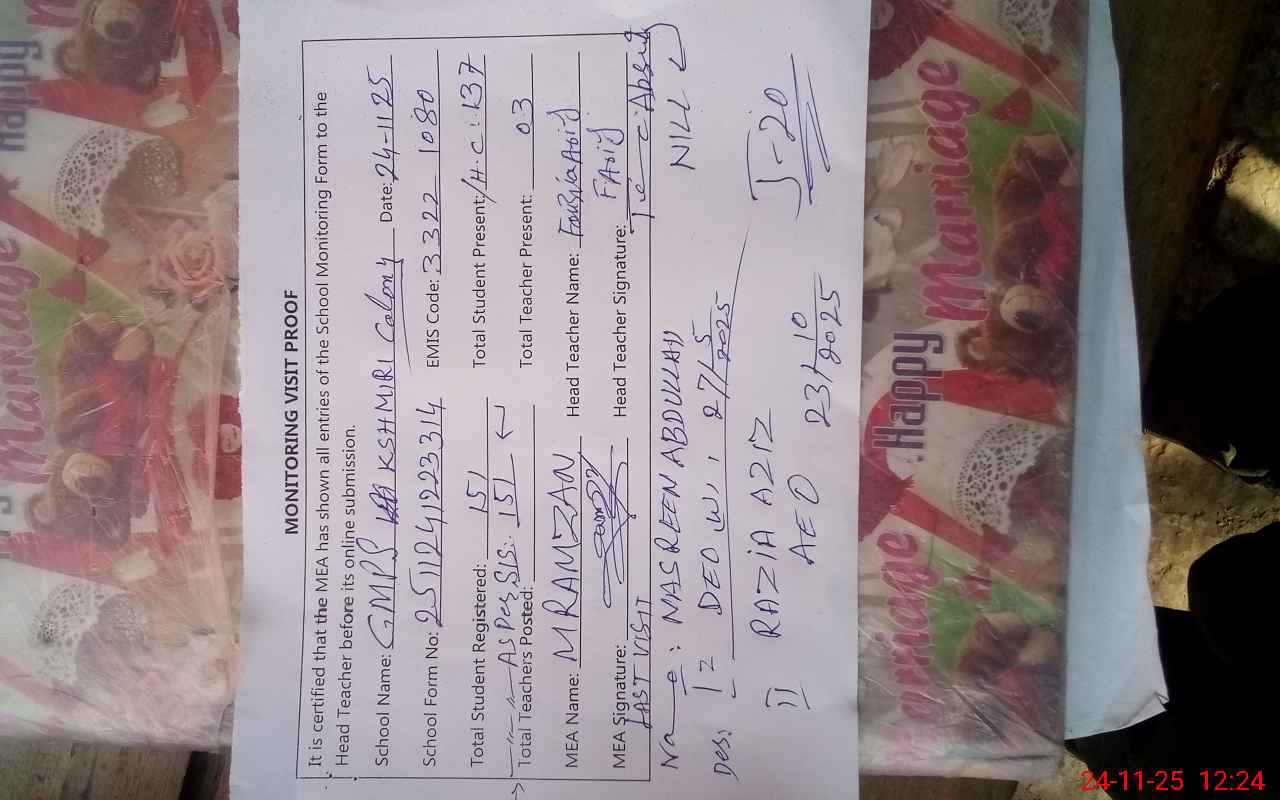 MONITORING VISIT PROOF
It is certified that the MEA has shown all entries of the School Monitoring Form to the
Head Teacher before its online submission.
School Name: GMPS KSHMIRI Colony Date: 24-11-25
School Form No: 251124122314 EMIS Code: 3322 1080
Total Student Registered: 151 Total Student Present: /H.C 1.137
As Per SIS. 151
Total Teachers Posted: Total Teacher Present: 03
MEA Name: M RAMZAN Head Teacher Name:
MEA Signature: Head Teacher Signature:
LAST VISIT
Na e : NASREEN ABDULLAH NILL
Des: I= DEO W. , 27/5/2025
II RAZIA AZIZ J-20
AEO 23/10/2025
Happy Marriage
Marriage
Happy Marriage
Marriage
24-11-25 12:24